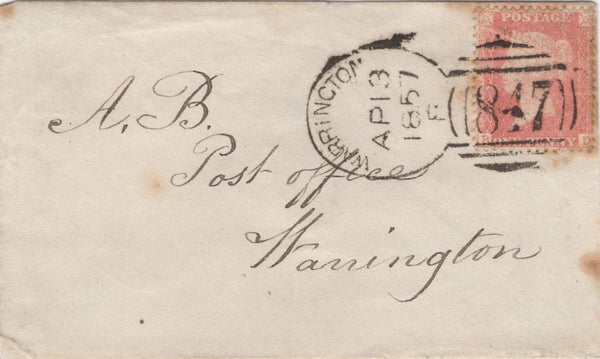 POSTAGE
WARRINGTON
AP13
1857
F
847
A. B.
Post office
Warrington